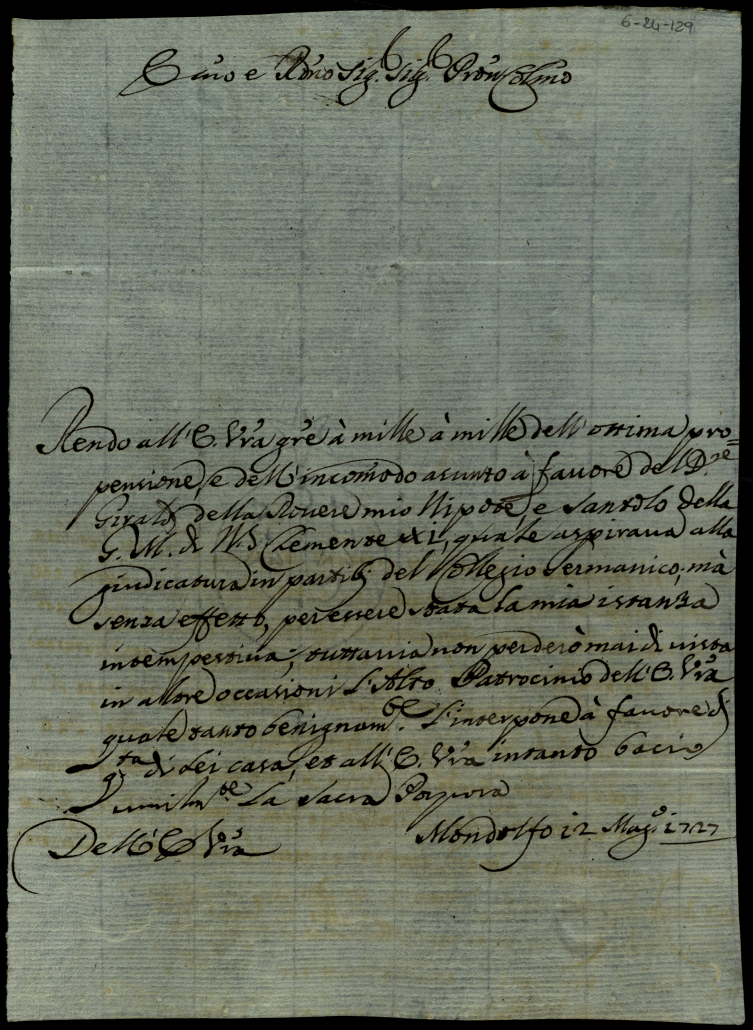 6-24-129
Emo e Rmo Sig.r Sig.r Prōn Colmo
Rendo all' E. Vr̃a gr̃e à mille à mille dell' ottima pro=
pensione, e dell' incomodo asunto à favore del D.re
Girald della Rovere mio Nipote, e Santolo della
G. M. di N. S. Clemente XI, quale aspirava alla
giudicatura in partib. del Collegio Germanico, mà
senza effetto, per essere stata la mia istanza
intempestiva; tuttavia non perderò mai di vista
in altre occasioni l'Alto Patrocinio dell' E. Vr̃a
quale tanto benignam.te l'interpone à favore di
q.ta di lei casa, et all' E. Vr̃a intanto bacio
umilm.te La Sacra Porpora
Dell' E. Vr̃a
Mondolfo 12 Mag.o 1727